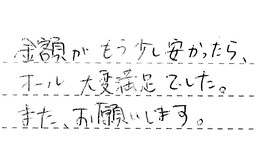 金額がもう少し安かったら、
オール大変満足でした。
また、お願いします。